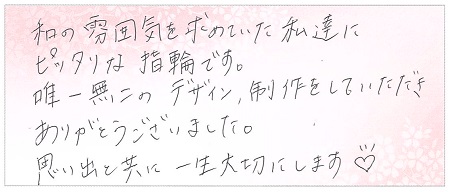 和の雰囲気を求めていた私達に
ピッタリな指輪です。
唯一無二のデザイン,制作をしていただき
ありがとうございました。
思い出と共に一生大切にします♡